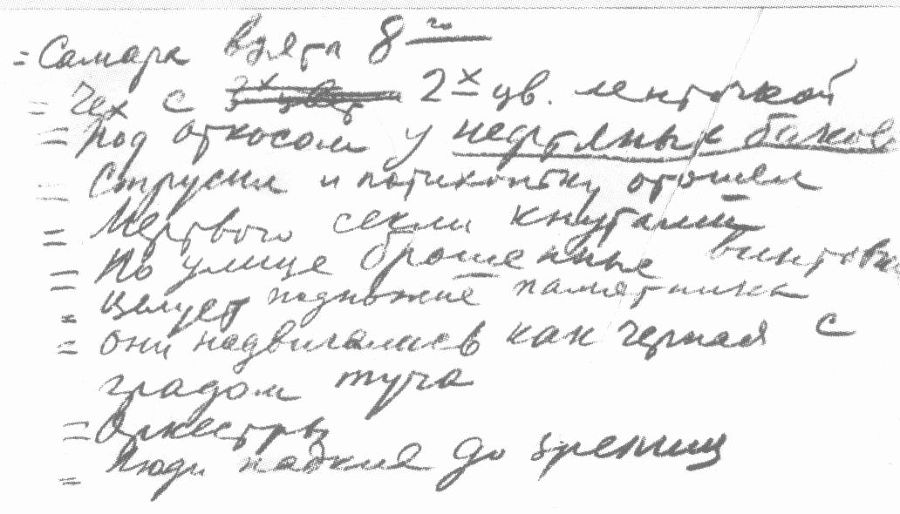 = Самара взята 8го
= Чех с 3х цвет 2х цв. ленточкой
= под откосом у нефтяных баков
= Струсил и потихоньку отошел
= Мертвого секли кнутами
= По улице брошенные винтовки
= целует подножие памятника
= они надвигались как черная с
градом туча
= Оркестры
= Люди падкие до зрелищ